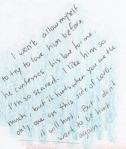 I won't allow myself
to try to love him before
he confesses his love to me
I'm scared. I like him so
much, but it hurts when you are the
only one on this side of love.
I will hope. But I don't
want to be hurt
again.